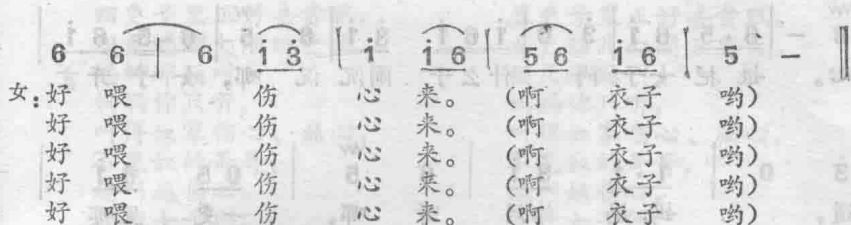 6 6 | 6 i̇ 3̇ | i̇ i̇ 6 | 5 6 i̇ 6 | 5 - ‖
女：好 喂 伤 心 来。（啊 衣子 哟）
好 喂 伤 心 来。（啊 衣子 哟）
好 喂 伤 心 来。（啊 衣子 哟）
好 喂 伤 心 来。（啊 衣子 哟）
好 喂 伤 心 来。（啊 衣子 哟）